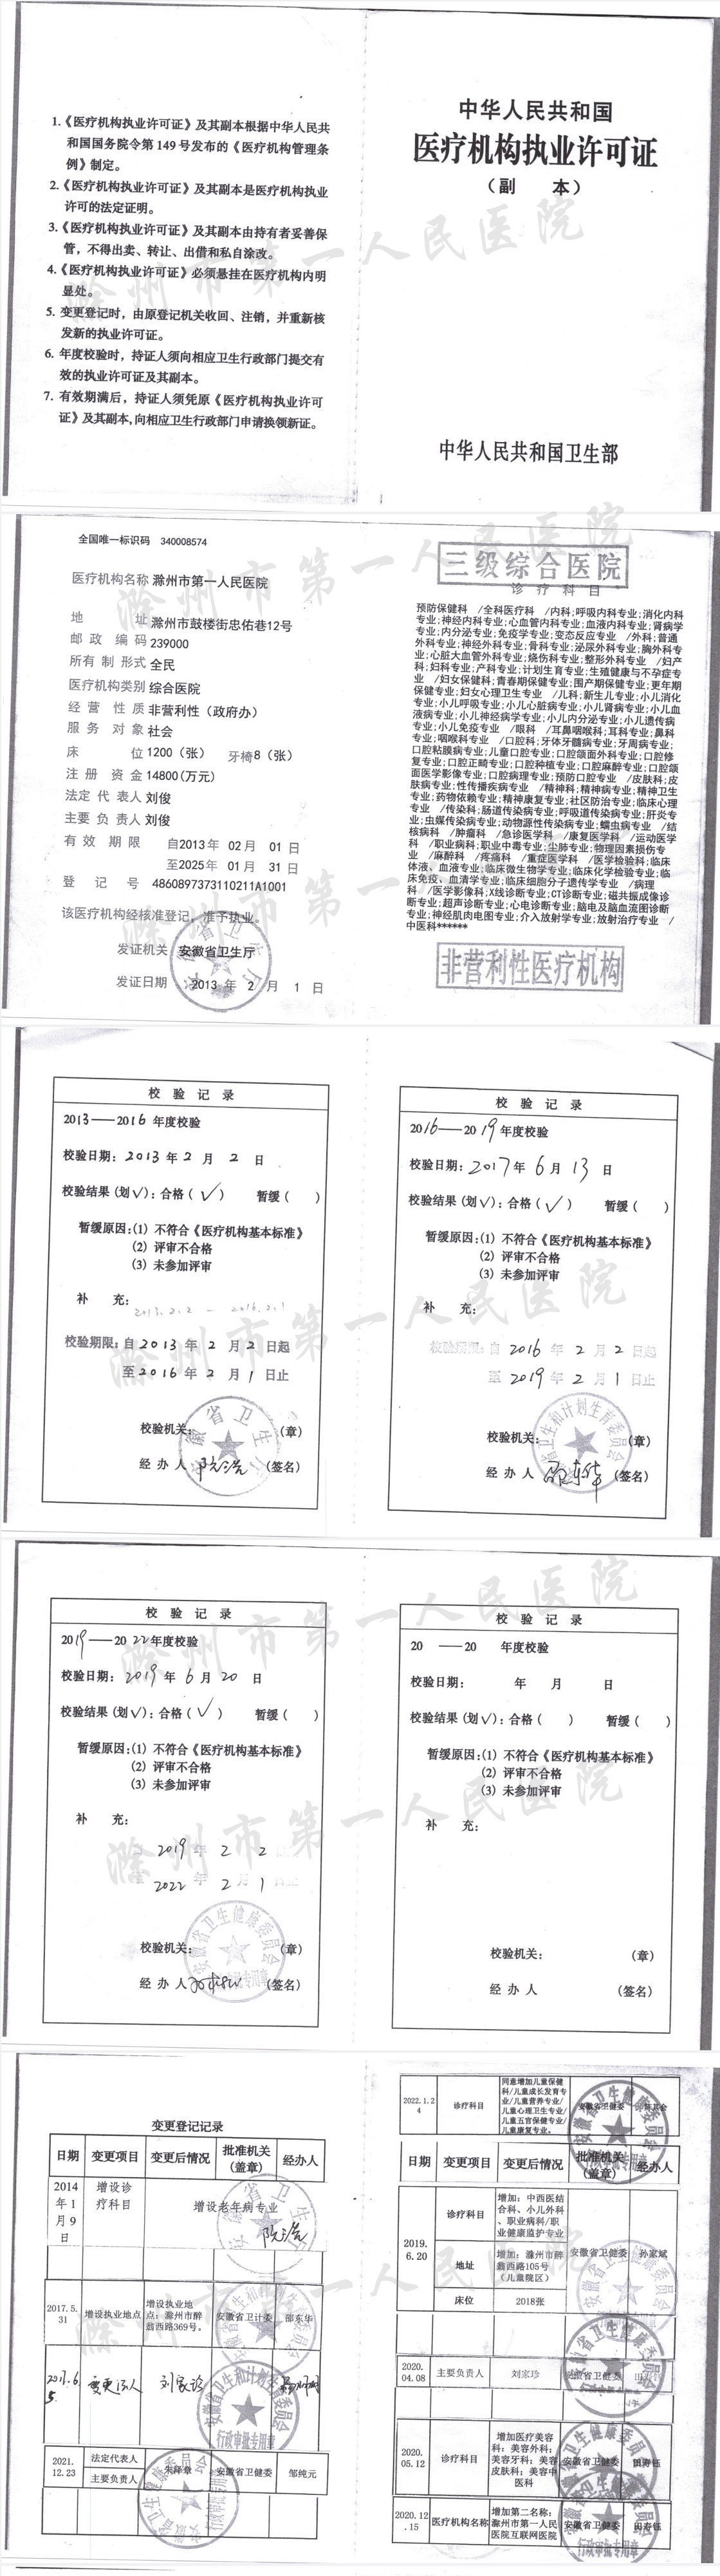 1.《医疗机构执业许可证》及其副本根据中华人民共
和国国务院令第149号发布的《医疗机构管理条
例》制定。
2.《医疗机构执业许可证》及其副本是医疗机构执业
许可的法定证明。
3.《医疗机构执业许可证》及其副本由持有者妥善保
管，不得出卖、转让、出借和私自涂改。
4.《医疗机构执业许可证》必须悬挂在医疗机构内明
显处。
5. 变更登记时，由原登记机关收回、注销，并重新核
发新的执业许可证。
6. 年度校验时，持证人须向相应卫生行政部门提交有
效的执业许可证及其副本。
7. 有效期满后，持证人须凭原《医疗机构执业许可
证》及其副本,向相应卫生行政部门申请换领新证。
中华人民共和国
医疗机构执业许可证
（副 本）
中华人民共和国卫生部
滁州市第一人民医院
全国唯一标识码 340008574
医疗机构名称 滁州市第一人民医院
地 址 滁州市鼓楼街忠佑巷12号
邮政编码 239000
所有制形式 全民
医疗机构类别 综合医院
经营性质 非营利性（政府办）
服务对象 社会
床 位 1200（张） 牙椅8（张）
注册资金 14800(万元)
法定代表人 刘俊
主要负责人 刘俊
有效期限 自2013年 02月 01日
至2025年 01月 31日
登记号 48608973731102​11A1001
该医疗机构经核准登记，准予执业。
发证机关 安徽省卫生厅
发证日期 2013 年 2 月 1 日
三级综合医院
诊疗科目
预防保健科 /全科医疗科 /内科;呼吸内科专业;消化内科
专业;神经内科专业;心血管内科专业;血液内科专业;肾病学
专业;内分泌专业;免疫学专业;变态反应专业 /外科;普通
外科专业;神经外科专业;骨科专业;泌尿外科专业;胸外科专
业;心脏大血管外科专业;烧伤科专业;整形外科专业 /妇产
科;妇科专业;产科专业;计划生育专业;生殖健康与不孕症专
业 /妇女保健科;青春期保健专业;围产期保健专业;更年期
保健专业;妇女心理卫生专业 /儿科;新生儿专业;小儿消化
专业;小儿呼吸专业;小儿心脏病专业;小儿肾病专业;小儿血
液病专业;小儿神经病学专业;小儿内分泌专业;小儿遗传病
专业;小儿免疫专业 /眼科 /耳鼻咽喉科;耳科专业;鼻科
专业;咽喉科专业 /口腔科;牙体牙髓病专业;牙周病专业;
口腔粘膜病专业;儿童口腔专业;口腔颌面外科专业;口腔修
复专业;口腔正畸专业;口腔种植专业;口腔麻醉专业;口腔颌
面医学影像专业;口腔病理专业;预防口腔专业 /皮肤科;皮
肤病专业;性传播疾病专业 /精神科;精神病专业;精神卫生
专业;药物依赖专业;精神康复专业;社区防治专业;临床心理
专业 /传染科;肠道传染病专业;呼吸道传染病专业;肝炎专
业;虫媒传染病专业;动物源性传染病专业;蠕虫病专业 /结
核病科 /肿瘤科 /急诊医学科 /康复医学科 /运动医学
科 /职业病科;职业中毒专业;尘肺专业;物理因素损伤专
业 /麻醉科 /疼痛科 /重症医学科 /医学检验科;临床
体液、血液专业;临床微生物学专业;临床化学检验专业;临
床免疫、血清学专业;临床细胞分子遗传学专业 /病理
科 /医学影像科;X线诊断专业;CT诊断专业;磁共振成像诊
断专业;超声诊断专业;心电诊断专业;脑电及脑血流图诊断
专业;神经肌肉电图专业;介入放射学专业;放射治疗专业 /
中医科******
非营利性医疗机构
滁州市第一人民医院
校 验 记 录
2013——2016 年度校验
校验日期: 2013 年 2 月 2 日
校验结果(划√): 合格(√) 暂缓( )
暂缓原因:(1) 不符合《医疗机构基本标准》
(2) 评审不合格
(3) 未参加评审
补 充:
2013.2.2 - 2016.2.1
校验期限:自 2013 年 2 月 2 日起
至 2016 年 2 月 1 日止
校验机关: (章)
经 办 人 (签名)
校 验 记 录
2016——2019 年度校验
校验日期: 2017 年 6 月 13 日
校验结果(划√): 合格(√) 暂缓( )
暂缓原因:(1) 不符合《医疗机构基本标准》
(2) 评审不合格
(3) 未参加评审
补 充:
校验期限:自 2016 年 2 月 2 日起
至 2019 年 2 月 1 日止
校验机关: (章)
经 办 人 邵东华 (签名)
滁州市第一人民医院
校 验 记 录
2019——2022 年度校验
校验日期: 2019 年 6 月 20 日
校验结果(划√): 合格(√) 暂缓( )
暂缓原因:(1) 不符合《医疗机构基本标准》
(2) 评审不合格
(3) 未参加评审
补 充:
2019 年 2 2
2022 年 2 月 1 日止
校验机关: (章)
经 办 人 (签名)
校 验 记 录
20 ——20 年度校验
校验日期: 年 月 日
校验结果(划√): 合格( ) 暂缓( )
暂缓原因:(1) 不符合《医疗机构基本标准》
(2) 评审不合格
(3) 未参加评审
补 充:
校验机关: (章)
经 办 人 (签名)
滁州市第一人民医院
变更登记记录
日期 变更项目 变更后情况 批准机关(盖章) 经办人
2014年1月9日 增设诊疗科目 增设老年病专业
2017.5.31 增设执业地点 增设执业地点：滁州市醉翁西路369号。 安徽省卫计委 邵东华
2017.6.5 变更法人 刘家珍
行政审批专用章
2021.12.23 法定代表人 主要负责人 朱泽章 安徽省卫健委 邹纯元
2022.1.24 诊疗科目 同意增加儿童保健科/儿童成长发育专业/儿童营养专业/儿童心理卫生专业/儿童五官保健专业/儿童康复专业。 安徽省卫健委
日期 变更项目 变更后情况 批准机关(盖章) 经办人
2019.6.20 诊疗科目 增加：中西医结合科、小儿外科、职业病科/职业健康监护专业
地址 增加：滁州市醉翁西路105号（儿童院区） 安徽省卫健委 孙家斌
床位 2018张
2020.04.08 主要负责人 刘家珍 安徽省卫健委
2020.05.12 诊疗科目 增加医疗美容科；美容外科；美容牙科；美容皮肤科；美容中医科 安徽省卫健委 田寿钰
2020.12.15 医疗机构名称 增加第二名称：滁州市第一人民医院互联网医院 安徽省卫健委 田寿钰
行政审批专用章